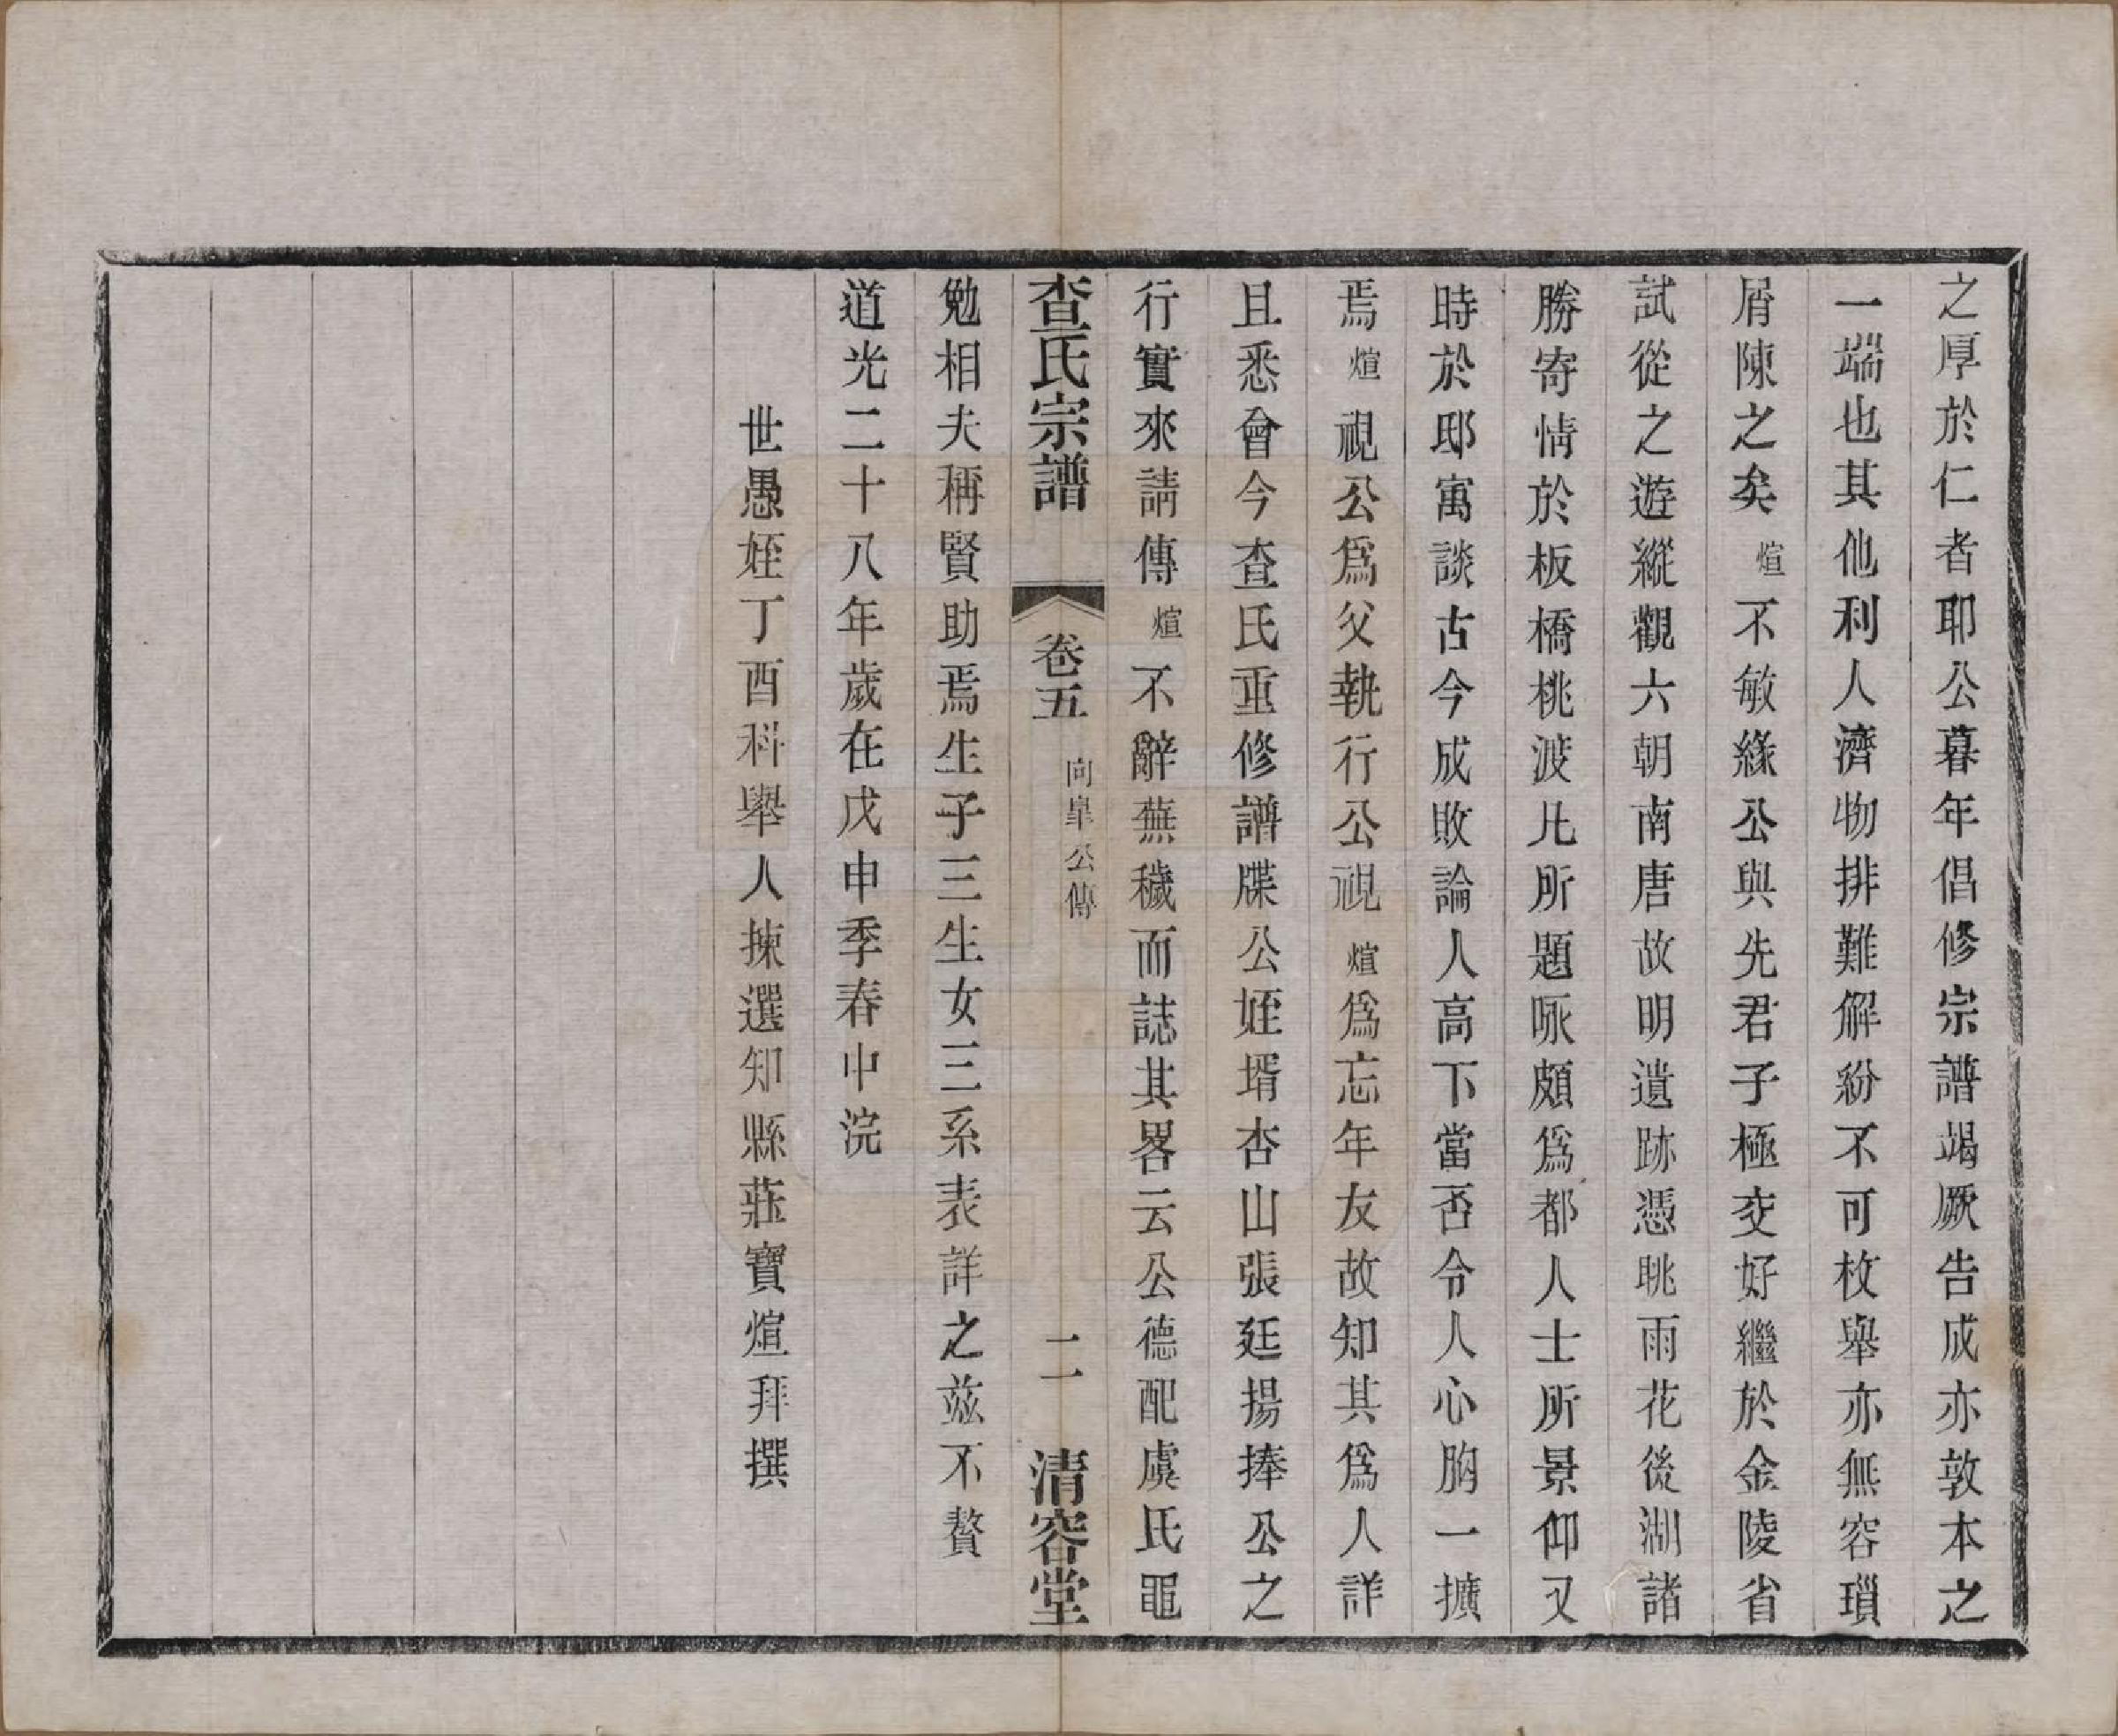 之厚於仁者耶公暮年倡修宗譜竭厥告成亦敦本之
一端也其他利人濟物排難解紛不可枚舉亦無容瑣
屑陳之矣煊不敏緣公與先君子極交好繼於金陵省
試從之遊縱觀六朝南唐故明遺跡憑眺雨花後湖諸
勝寄情於板橋桃渡凡所題咏頗爲都人士所景仰又
時於邸寓談古今成敗論人高下當否令人心胸一擴
焉煊視公爲父執行公視煊爲忘年友故知其爲人詳
且悉會今查氏重修譜牒公姪壻杏山張廷揚捧公之
行實來請傳煊不辭蕪穢而誌其畧云公德配虞氏黽
查氏宗譜 卷五 向臯公傳 二 清容堂
勉相夫稱賢助焉生子三生女三系表詳之茲不贅
道光二十八年歲在戊申季春中浣
世愚姪丁酉科舉人揀選知縣莊寶煊拜撰